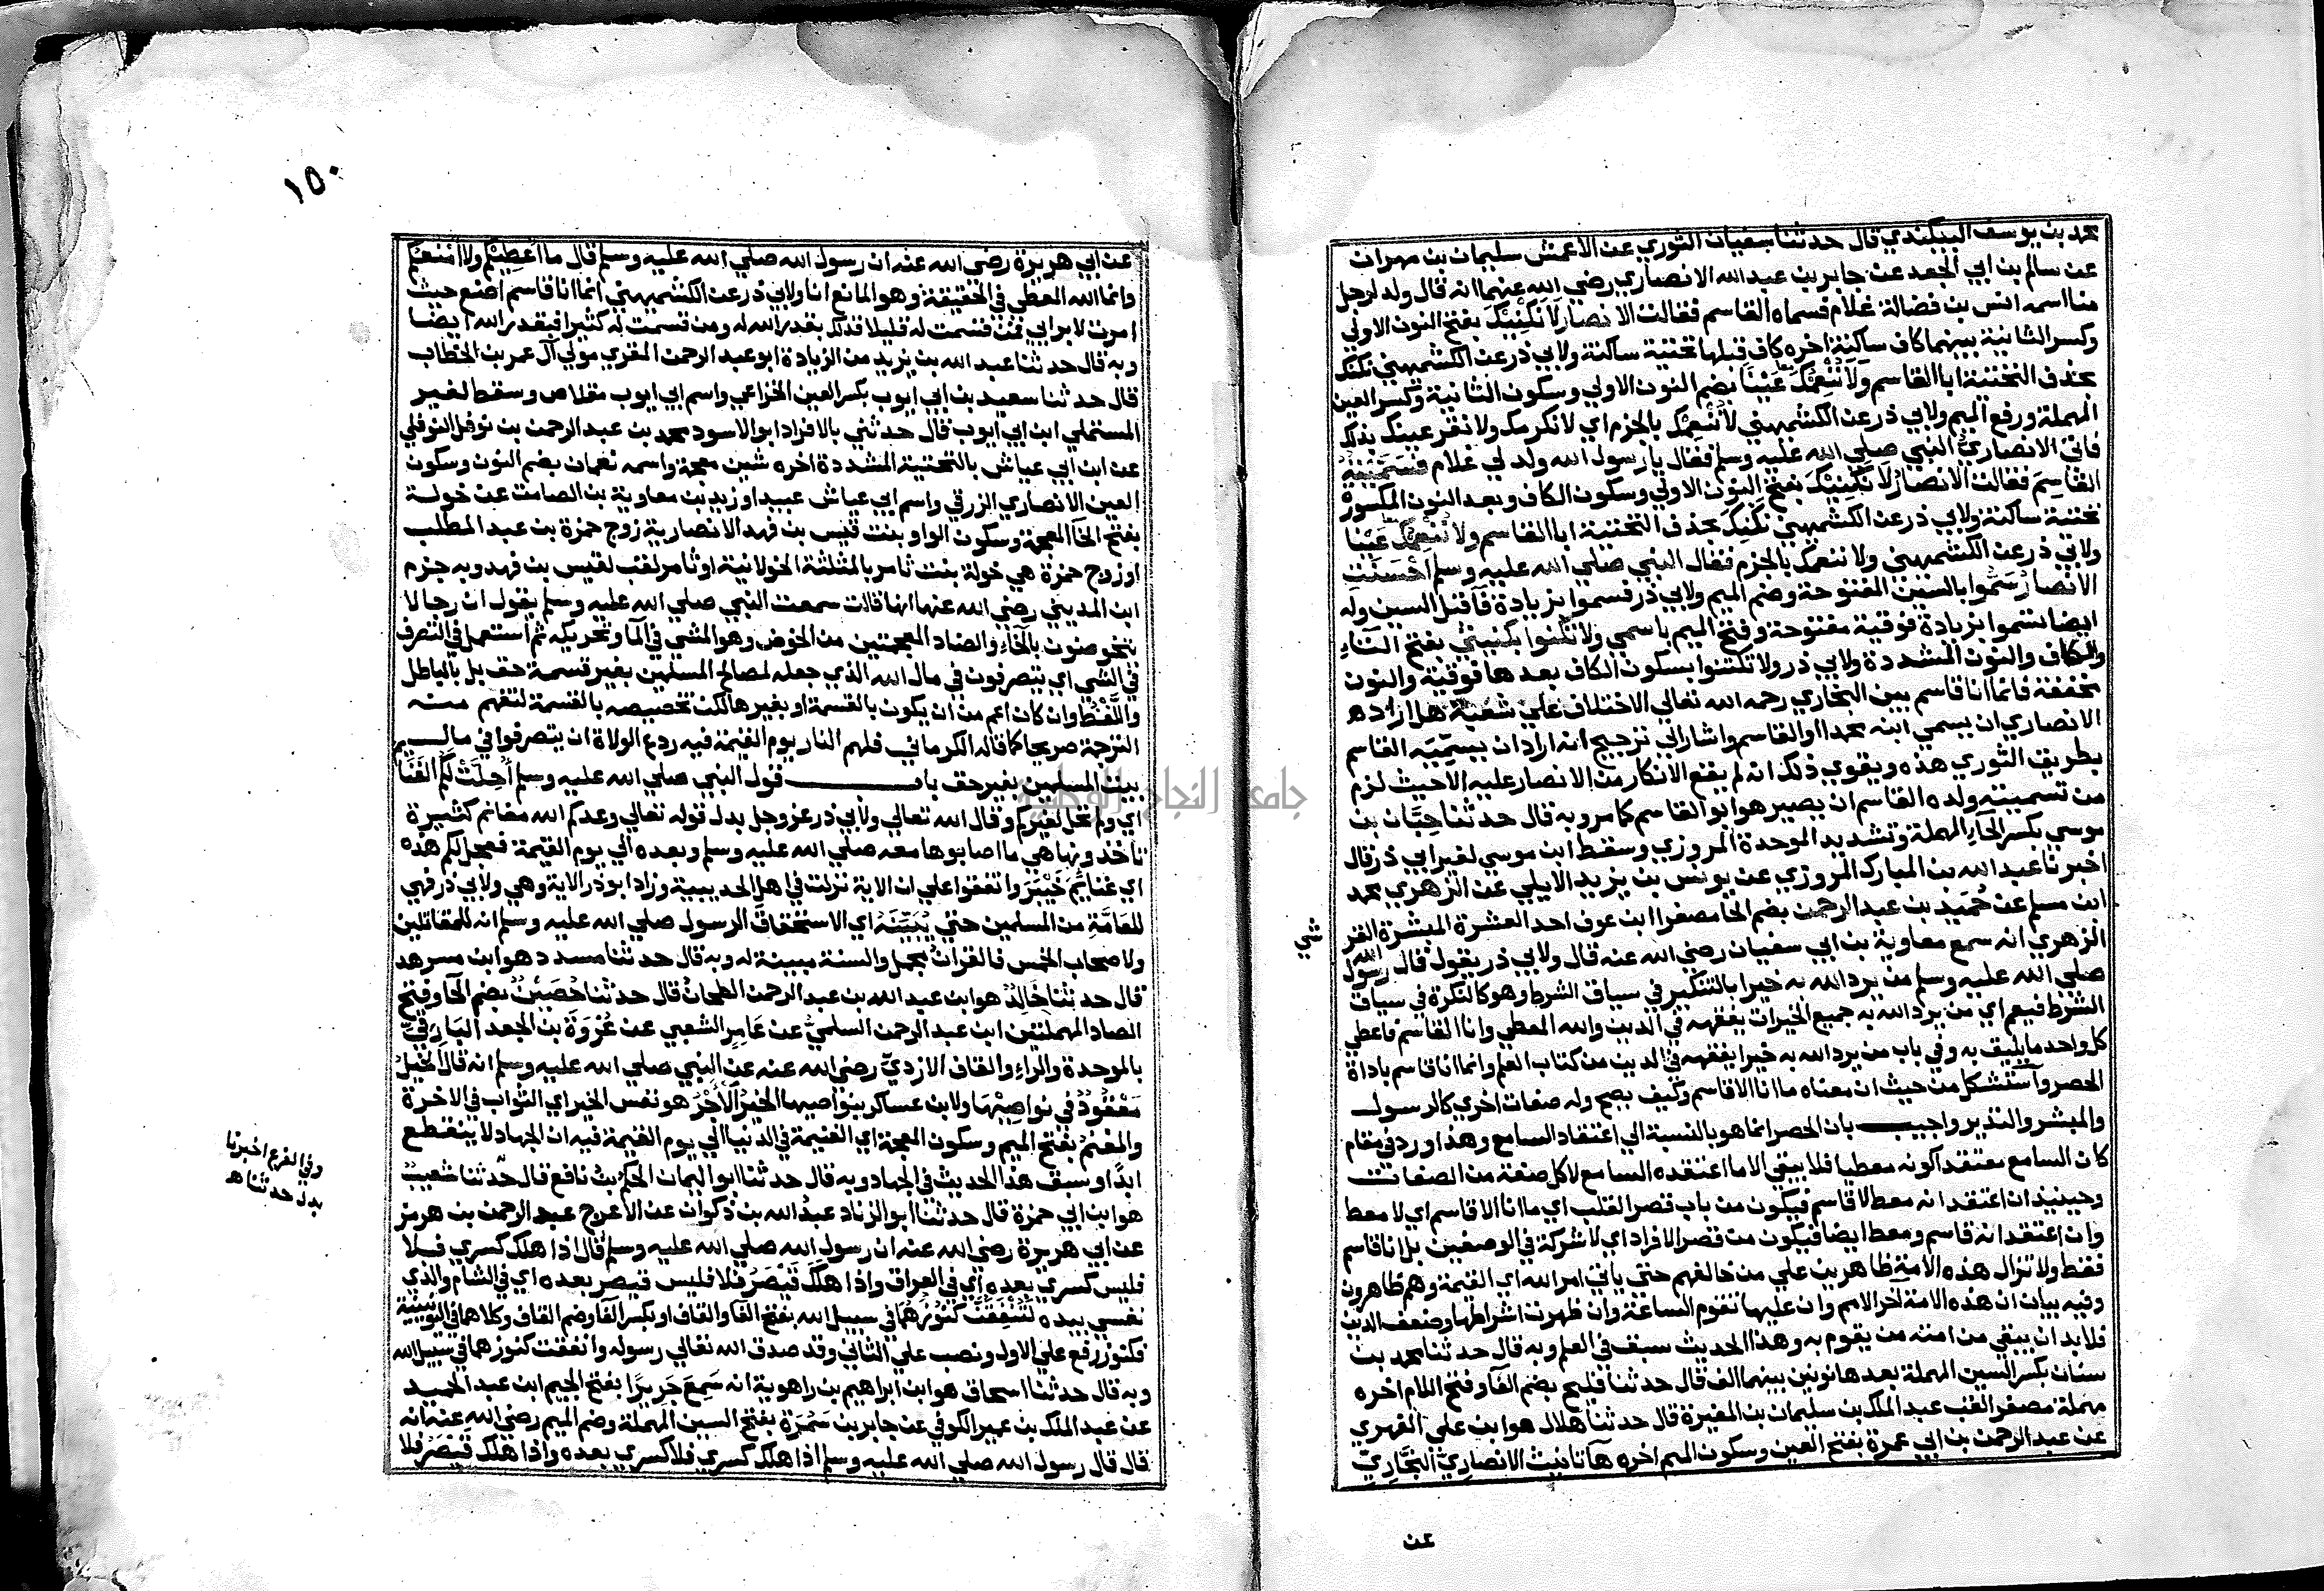 محمد بن يوسف البيكندي قال حدثنا سفيان الثوري عن الاعمش سليمان بن مهران
عن سالم بن ابي الجعد عن جابر بن عبد الله الانصاري رضي الله عنهما انه قال ولد لرجل
منا اسمه انس بن فضالة غلام فسماه القاسم فقالت الانصار لا نكنيك بفتح النون الاولي
وكسر الثانية بينهما كاف ساكنة اخره كاف قبلها تحتية ساكنة ولابي ذر عن الكشميهني نكنك
بحذف التحتية ابا القاسم ولا ننعمك عينا بضم النون الاولي وسكون الثانية وكسر العين
المهملة ورفع الميم ولابي ذر عن الكشميهني لا ننعمك بالجزم اي لا نكرمك ولا نقر عينك بذلك
فاتي الانصاري النبي صلي الله عليه وسلم فقال يا رسول الله ولد لي غلام فسميته
القاسم فقالت الانصار لا نكنيك بفتح النون الاولي وسكون الكاف وبعد النون المكسورة
تحتية ساكنة ولابي ذر عن الكشميهني نكنك بحذف التحتية ابا القاسم ولا ننعمك عينا
ولابي ذر عن الكشميهني ولا ننعمك بالجزم فقال النبي صلي الله عليه وسلم احسنت
الانصار سموا بالسين المفتوحة وضم الميم ولابي ذر فسموا بزيادة فآ قبل السين وله
ايضا تسموا بزيادة فوقية مفتوحة وفتح الميم باسمي ولا تكنوا بكنيتي بفتح التاء
والكاف والنون المشددة ولابي ذر ولا تكتنوا بسكون الكاف بعدها فوقية والنون
مخففة فانما انا قاسم بين البخاري رحمه الله تعالي الاختلاف علي شعبة هل اراد
الانصاري ان يسمي ابنه محمدا او القاسم واشار الي ترجيح انه اراد ان يسميه القاسم
بطريق الثوري هذه ويقوي ذلك انه لم يقع الانكار من الانصار عليه الا حيث لزم
من تسميته ولده القاسم ان يصير هو ابو القاسم كما مر وبه قال حدثنا حبان بن
موسي بكسر الحاء المهملة وتشديد الموحدة المروزي وسقط ابن موسي لغير ابي ذر قال
اخبرنا عبد الله بن المبارك المروزي عن يونس بن يزيد الايلي عن الزهري محمد
ابن مسلم عن حميد بن عبد الرحمن بضم الحا مصغرا ابن عوف احد العشرة المبشرة القر
شي
الزهري انه سمع معاوية بن ابي سفيان رضي الله عنه قال ولابي ذر يقول قال رسول الله
صلي الله عليه وسلم من يرد الله به خيرا بالتنكير في سياق الشرط وهو كالنكرة في سياق
الشرط فيعم اي من يرد الله به جميع الخيرات يفقهه في الدين والله المعطي وانا القاسم فاعطي
كل واحد ما يليق به وفي باب من يرد الله به خيرا يفقهه في الدين من كتاب العلم وانما انا قاسم باداة
الحصر واستشكل من حيث ان معناه ما انا الا قاسم وكيف يصح وله صفات اخري كالرسول
والمبشر والنذير واجيب بان الحصر انما هو بالنسبة الي اعتقاد السامع وهذا ورد في مقام
كان السامع معتقدا كونه معطيا فلا ينفي الا ما اعتقده السامع لا كل صفة من الصفات
وحينيذ ان اعتقد انه معط لا قاسم فيكون من باب قصر القلب اي ما انا الا قاسم اي لا معط
وان اعتقد انه قاسم ومعط ايضا فيكون من قصر الافراد اي لا شركة في الوصفين بل انا قاسم
فقط ولا تزال هذه الامة ظاهرين علي من خالفهم حتي ياتي امر الله اي القيمة وهم ظاهرون
وفيه بيان ان هذه الامة آخر الامم وان عليها تقوم الساعة وان ظهرت اشراطها وضعف الدين
فلا بد ان يبقي من امته من يقوم به وهذا الحديث سبق في العلم وبه قال حدثنا محمد بن
سنان بكسر السين المهملة بعدها نونين بينهما الف قال حدثنا فليح بضم الفآ وفتح اللام اخره
مهملة مصغرا لقب عبد الملك بن سليمان بن المغيرة قال حدثنا هلال هو ابن علي الفهري
عن عبد الرحمن بن ابي عمرة بفتح العين وسكون الميم اخره هآ تانيث الانصاري النجاري
عن
١٥٠
عن ابي هريرة رضي الله عنه ان رسول الله صلي الله عليه وسلم قال ما اعطيكم ولا امنعكم
وانما الله المعطي في الحقيقة وهو المانع انا ولابي ذر عن الكشميهني انما انا قاسم اضع حيث
امرت لا براي فمن قسمت له قليلا فذلك بقدر الله له ومن قسمت له كثيرا فبقدر الله ايضا
وبه قال حدثنا عبد الله بن يزيد من الزيادة ابو عبد الرحمن المقري مولي آل عمر بن الخطاب
قال حدثنا سعيد بن ابي ايوب بكسر العين الخزاعي واسم ابي ايوب مقلاص وسقط لغير
المستملي ابن ابي ايوب قال حدثني بالافراد ابو الاسود محمد بن عبد الرحمن بن نوفل النوفلي
عن ابن ابي عياش بالتحتية المشددة اخره شين معجمة واسمه نعمان بضم النون وسكون
العين الانصاري الزرقي واسم ابي عياش عبيد او زيد بن معاوية بن الصامت عن خولة
بفتح الخآ المعجمة وسكون الواو بنت قيس بن فهد الانصارية زوج حمزة بن عبد المطلب
او زوج حمزة هي خولة بنت ثامر بالمثلثة الخولانية او ثامر لقب لقيس بن فهد وبه جزم
ابن المديني رضي الله عنها انها قالت سمعت النبي صلي الله عليه وسلم يقول ان رجالا
يتخوضون بالخاء والضاد المعجمتين من الخوض وهو المشي في المآ وتحريكه ثم استعمل في التصرف
في الشي اي يتصرفون في مال الله الذي جعله لمصالح المسلمين بغير قسمة حق بل بالباطل
واللفظ وان كان اعم من ان يكون بالقسمة او بغيرها لكن تخصيصه بالقسمة لتفهم منه
الترجمة صريحا كما قاله الكرماني فلهم النار يوم القيمة فيه ردع الولاة ان يتصرفوا في مال
بيت المسلمين بغير حق باب قول النبي صلي الله عليه وسلم احلت لكم الغنايم
اي ولم تحل لغيركم وقال الله تعالي ولابي ذر عز وجل بدل قوله تعالي وعدكم الله مغانم كثيرة
تاخذونها هي ما اصابوها معه صلي الله عليه وسلم وبعده الي يوم القيمة فعجل لكم هذه
اي غنايم خيبر واتفقوا علي ان الاية نزلت في اهل الحديبية وزاد ابو ذر الاية وهي ولابي ذر فهي
للعامة من المسلمين حتي يبينه اي الاستحقاق الرسول صلي الله عليه وسلم انه للمقاتلين
ولاصحاب الخمس فالقران مجمل والسنة مبينة له وبه قال حدثنا مسدد هو ابن مسرهد
قال حدثنا خالد هو ابن عبد الله بن عبد الرحمن الطحان قال حدثنا حصين بضم الحآ وفتح
الصاد المهملتين ابن عبد الرحمن السلمي عن عامر الشعبي عن عروة بن الجعد البارقي
بالموحدة والراء والقاف الازدي رضي الله عنه عن النبي صلي الله عليه وسلم انه قال الخيل
معقود في نواصيها ولابن عساكر بنواصيها الخير الاجر هو نفس الخير اي الثواب في الاخرة
والمغنم بفتح الميم وسكون المعجمة اي الغنيمة في الدنيا الي يوم القيمة فيه ان الجهاد لا ينقطع
ابدا وسبق هذا الحديث في الجهاد وبه قال حدثنا ابو اليمان الحكم بن نافع قال حدثنا شعيب
هو ابن ابي حمزة قال حدثنا ابو الزناد عبد الله بن ذكوان عن الاعرج عبد الرحمن بن هرمز
عن ابي هريرة رضي الله عنه ان رسول الله صلي الله عليه وسلم قال اذا هلك كسري فلا
فليس كسري بعده اي في العراق واذا هلك قيصر فلا فليس قيصر بعده اي في الشام والذي
نفسي بيده لتنفقن كنوزهما في سبيل الله بفتح الفا والقاف او بكسر الفآ وضم القاف وكلاهما في اليونينية
فكنوز رفع علي الاول ونصب علي الثاني وقد صدق الله تعالي رسوله وانفقت كنوزهما في سبيل الله
وبه قال حدثنا اسحاق هو ابن ابراهيم بن راهوية انه سمع جريرا بفتح الجيم ابن عبد الحميد
عن عبد الملك بن عمير الكوفي عن جابر بن سمرة بفتح السين المهملة وضم الميم رضي الله عنه انه
قال قال رسول الله صلي الله عليه وسلم اذا هلك كسري فلا كسري بعده واذا هلك قيصر فلا
وفي الفرع اخبرنا
بدل حدثنا ه
جامعة النجاح الوطنية